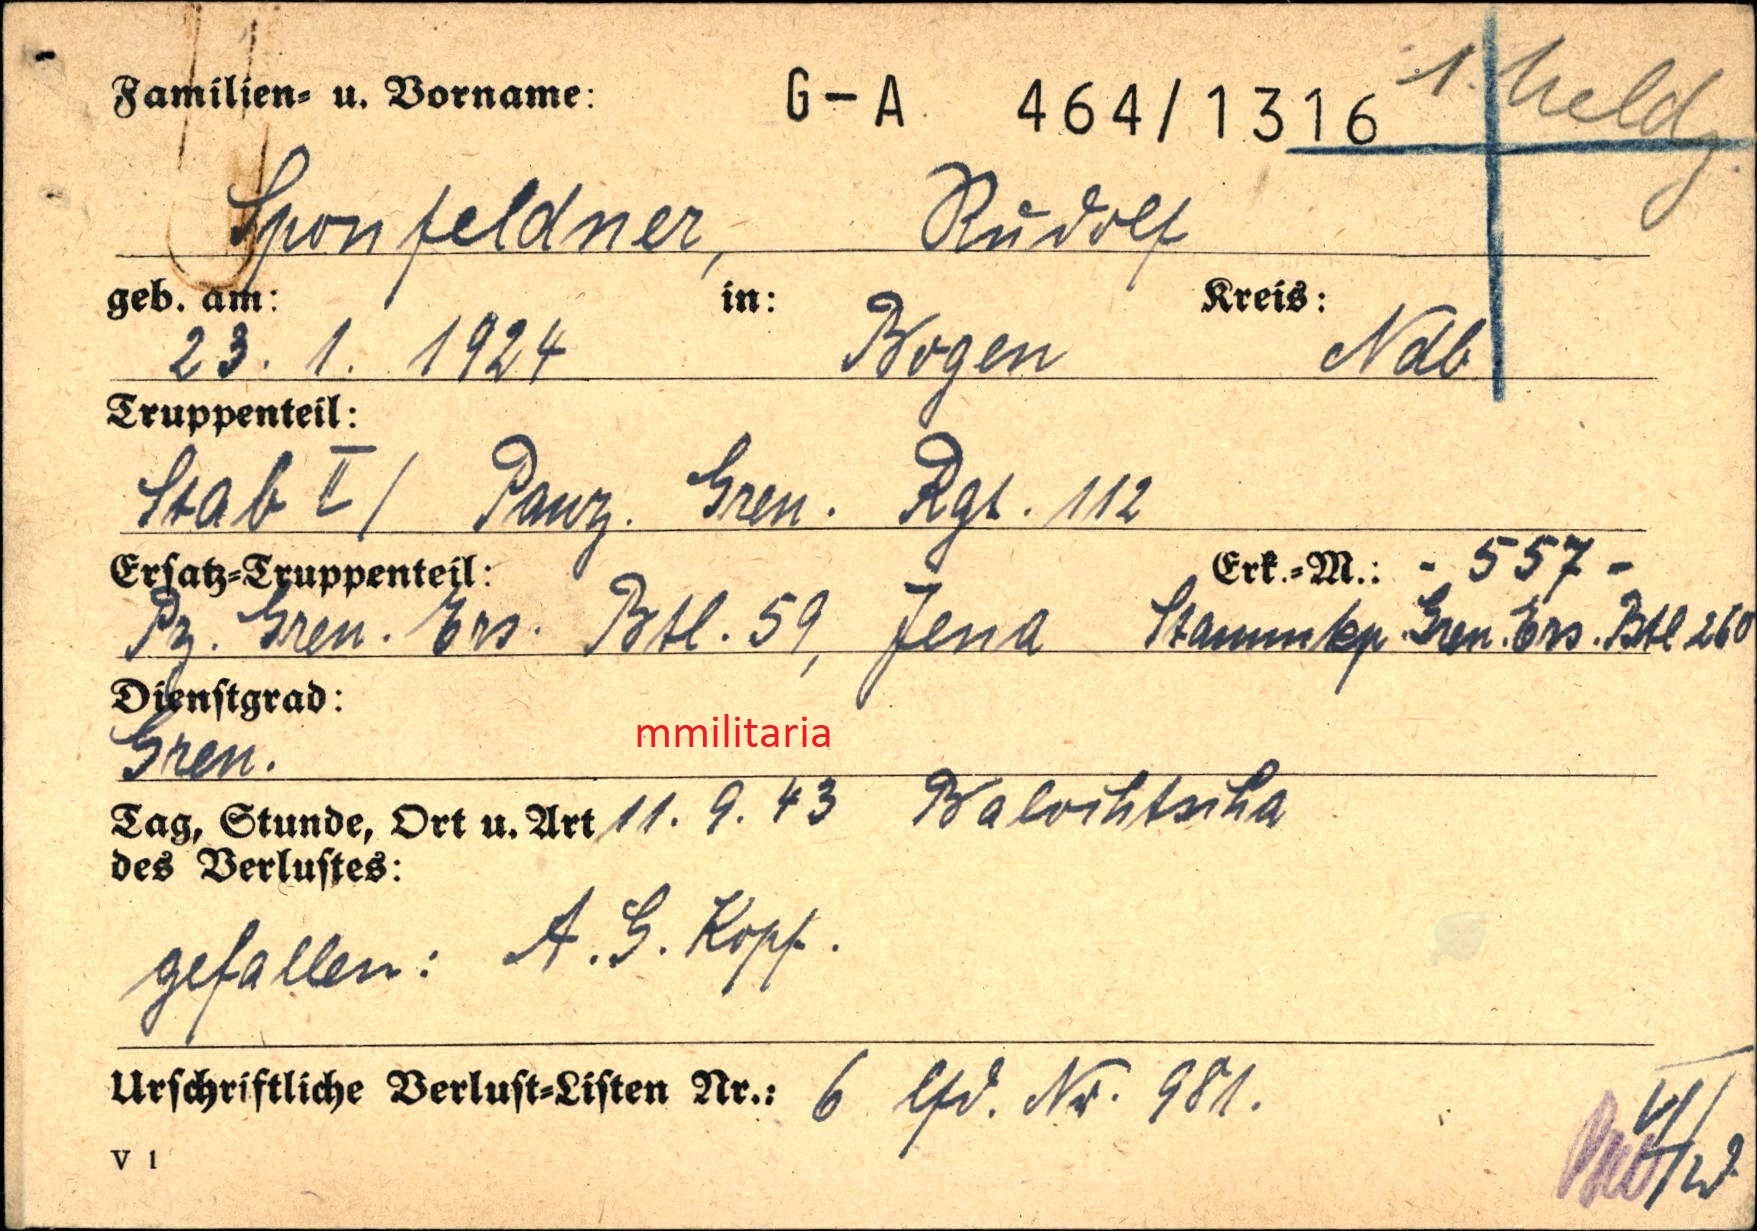 Familien- u. Vorname: G-A 464/1316 1. Meldg.
Sponfeldner, Rudolf
geb. am: in: Kreis:
23. 1. 1924 Bogen Ndb
Truppenteil:
Stab I / Panz. Gren. Rgt. 112
Ersatz-Truppenteil: Erk.-M.: - 557 -
Pz. Gren. Ers. Btl. 59, Jena Stammkp. Gren. Ers. Btl 260
Dienstgrad:
mmilitaria
Gren.
Tag, Stunde, Ort u. Art 11. 9. 43
des Verlustes:
gefallen: A. G. Kopf.
Urschriftliche Verlust-Listen Nr.: 6 lfd. Nr. 981.
V 1